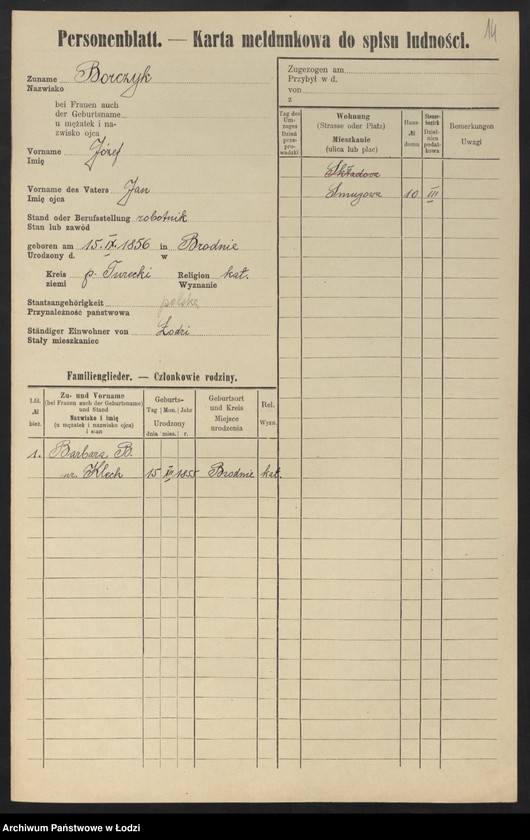 14
Personenblatt. — Karta meldunkowa do spisu ludności.
Zuname Borczyk
Nazwisko
bei Frauen auch
der Geburtsname
u mężatek i na-
zwisko ojca
Vorname Józef
Imię
Vorname des Vaters Jan
Imię ojca
Stand oder Berufsstellung robotnik
Stan lub zawód
geboren am 15. IX. 1856 in Brodnie
Urodzony d. w
Kreis p. Turecki Religion kat.
ziemi Wyznanie
Staatsangehörigkeit polska
Przynależność państwowa
Ständiger Einwohner von Łodzi
Stały mieszkaniec
Zugezogen am
Przybył w d.
von
z
Tag des Um-zuges Dzień prze-pro-wadzki
Wohnung
(Strasse oder Platz)
Mieszkanie
(ulica lub plac)
Haus № domu
Steuer-bezirk Dziel-nica podat-kowa
Bemerkungen
Uwagi
Składowa
Smugowa 10 III
Familienglieder. — Członkowie rodziny.
Lfd. № bież.
Zu- und Vorname
(bei Frauen auch der Geburtsname)
und Stand
Nazwisko i imię
(u mężatek i nazwisko ojca)
i stan
Geburts-
Tag Mon. Jahr
Urodzony
dnia mies. r.
Geburtsort
und Kreis
Miejsce
urodzenia
Rel.
Wyzn.
1. Barbara B.
ur. Klech 15 1855 Brodnie kat.
Archiwum Państwowe w Łodzi